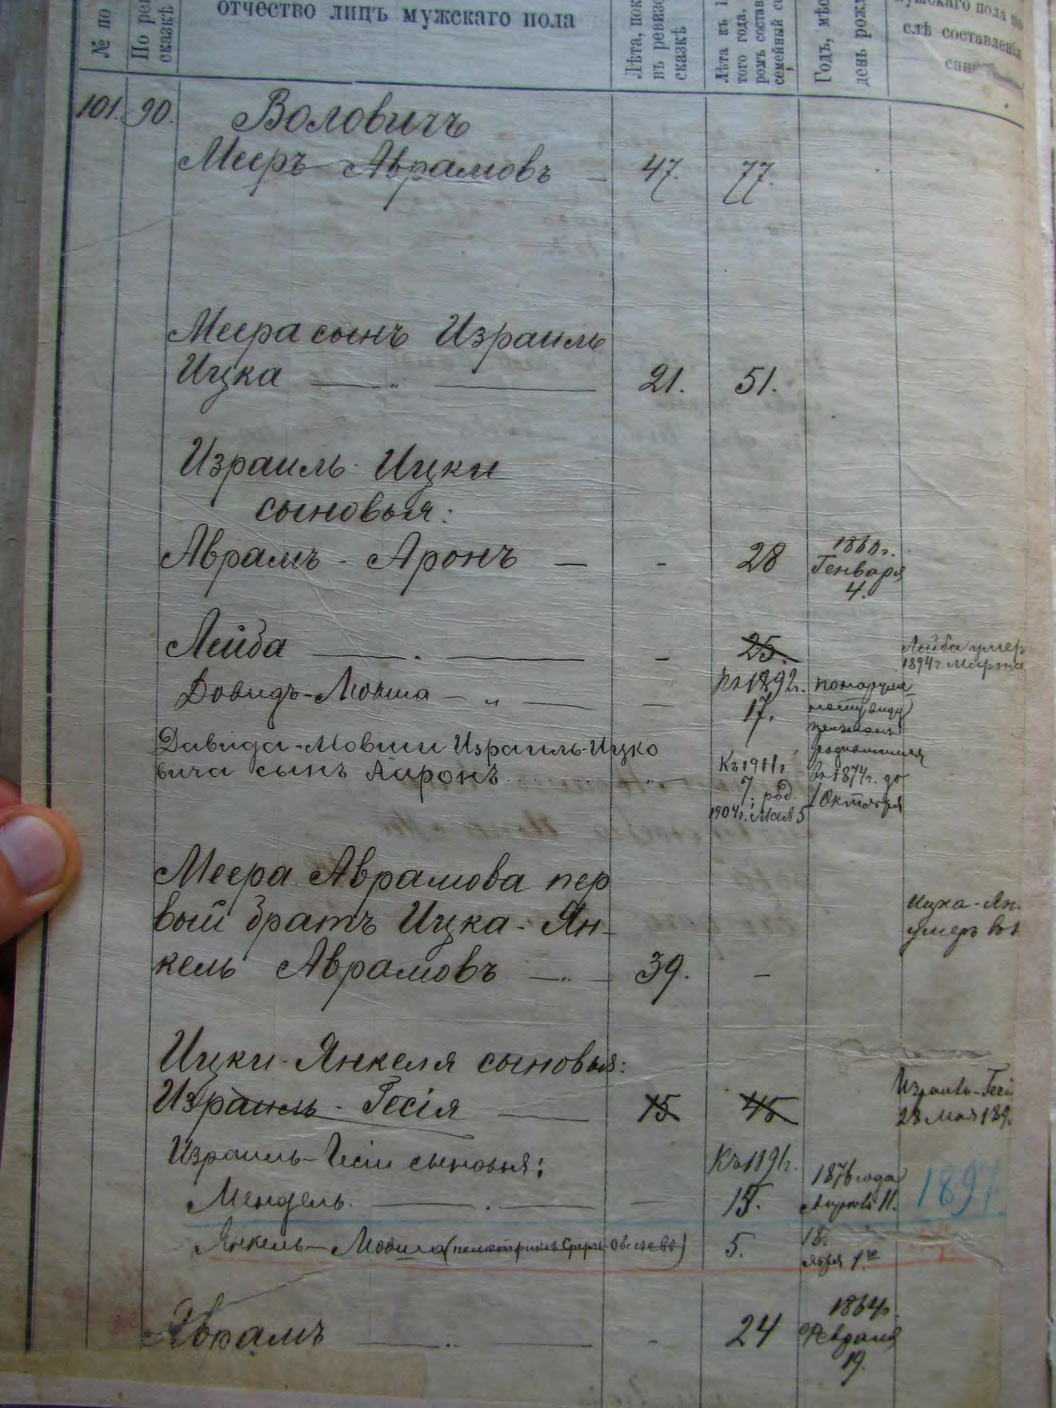 № по
По рев
сказкѣ
отчество лицъ мужскаго пола
Лѣта, пок
въ ревизс
сказкѣ
Лѣта къ 1
того года,
ромъ состав
семейный сп
Годъ, мѣс
день рожд
мужскаго пола по
слѣ составленія
101. 90. Воловичъ
Мееръ Аврамовъ — 47. 77.
Меера сынъ Израиль
Ицка — „ — 21. 51.
Израиль-Ицки
сыновья:
Аврамъ - Аронъ — - 28 1860г.
Генваря
4.
Лейба — . — - 25. Лейба умер
1894г Марта
Довидъ-Мовша — „ — — къ 1892г.
17.
понаружн
ному виду
родившимся
въ 1874г. до
1 Октября
Давида-Мовши Израиль-Ицко
вича сынъ Ааронъ „ Къ 1911г
7, род.
1904г. Мая 5
Меера Аврамова пер
вый братъ Ицка-Ян-
кель Аврамовъ — 39. -
Ицка-Ян.
умеръ въ
Ицки-Янкеля сыновья:
Израиль - Гесія — 15 45 Израиль-Гесі
28 Мая 189.
Израиль-Гесіи сыновья: Къ 1891г.
Мендель — . — — 15. 1876 года
11. 1897
Янкель-Мовша ( ) 5. 18.
Аврамъ — „ — - 24 1864г.
Февраля
19.